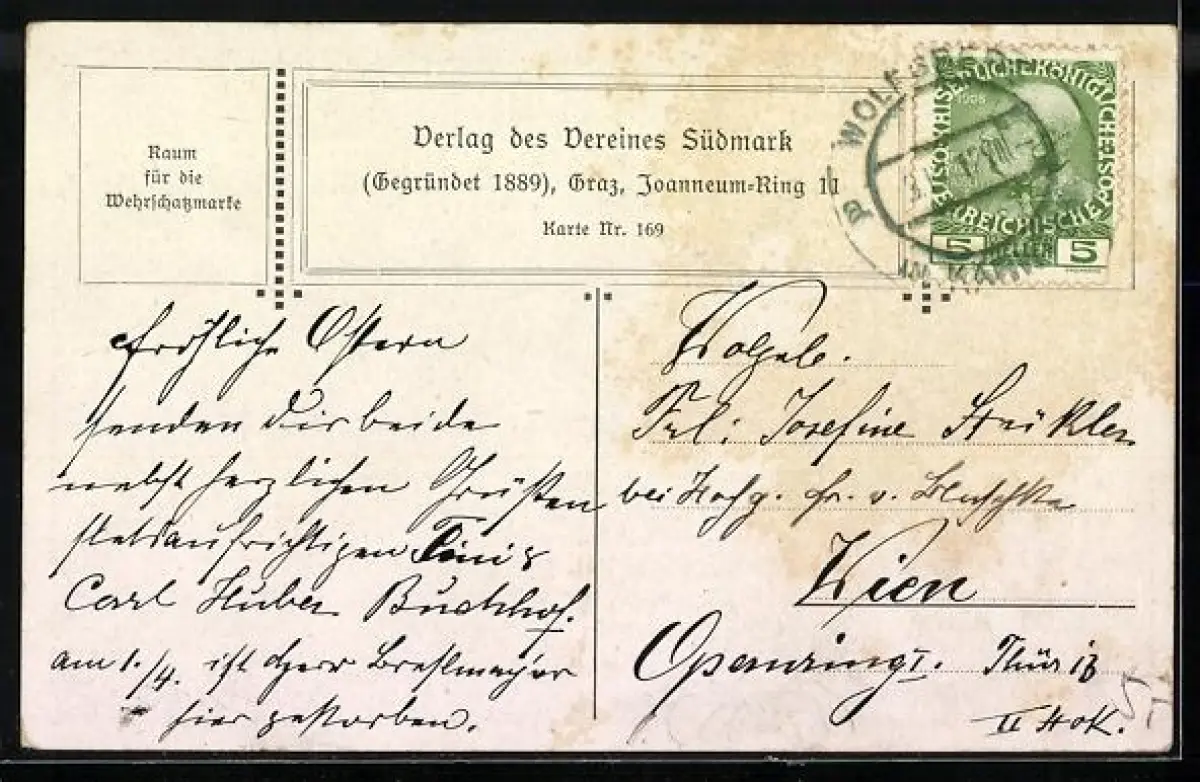 Raum
für die
Wehrschatzmarke
Verlag des Vereines Südmark
(Gegründet 1889), Graz, Joanneum-Ring 11
Karte Nr. 169
WOLFSBERG
IN KÄRNTEN
KAISERLICHE KÖNIGLICHE
ÖSTERREICHISCHE POST
1908
5 HELLER 5
Fröhliche Ostern
senden Dir beide
nebst herzlichen Grüßen
stets aufrichtigen Tini &
Carl Huber Buchhof.
am 1./4. ist Herr
hier gestorben.
Wolgeb.
Frl: Josefine
bei Hofg. Fr. v.
Wien
Opernring I. Thür 13
II Stok.